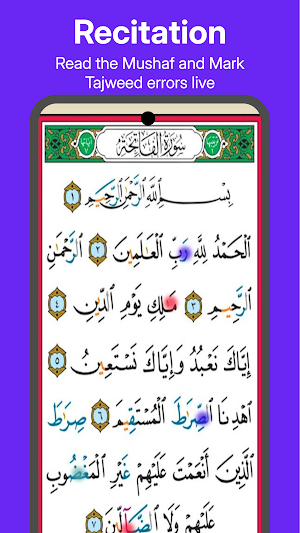 Recitation
Read the Mushaf and Mark
Tajweed errors live
سُورَةُ الْفَاتِحَةِ
بِسْمِ ٱللَّهِ ٱلرَّحْمَٰنِ ٱلرَّحِيمِ ١
ٱلْحَمْدُ لِلَّهِ رَبِّ ٱلْعَٰلَمِينَ ٢ ٱلرَّحْمَٰنِ
ٱلرَّحِيمِ ٣ مَٰلِكِ يَوْمِ ٱلدِّينِ ٤
إِيَّاكَ نَعْبُدُ وَإِيَّاكَ نَسْتَعِينُ ٥
ٱهْدِنَا ٱلصِّرَٰطَ ٱلْمُسْتَقِيمَ ٦ صِرَٰطَ
ٱلَّذِينَ أَنْعَمْتَ عَلَيْهِمْ غَيْرِ ٱلْمَغْضُوبِ
عَلَيْهِمْ وَلَا ٱلضَّآلِّينَ ٧